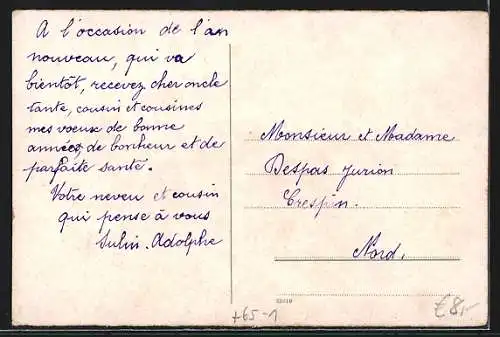 A l'occasion de l'an
nouveau, qui va
bientôt, recevez cher oncle
tante, cousin et cousines
mes voeux de bonne
années de bonheur et de
parfaite santé.
Votre neveu et cousin
qui pense à vous
Adolphe
Monsieur et Madame
Despas Jurion
Crespin.
Nord.
+65-1
€8,-